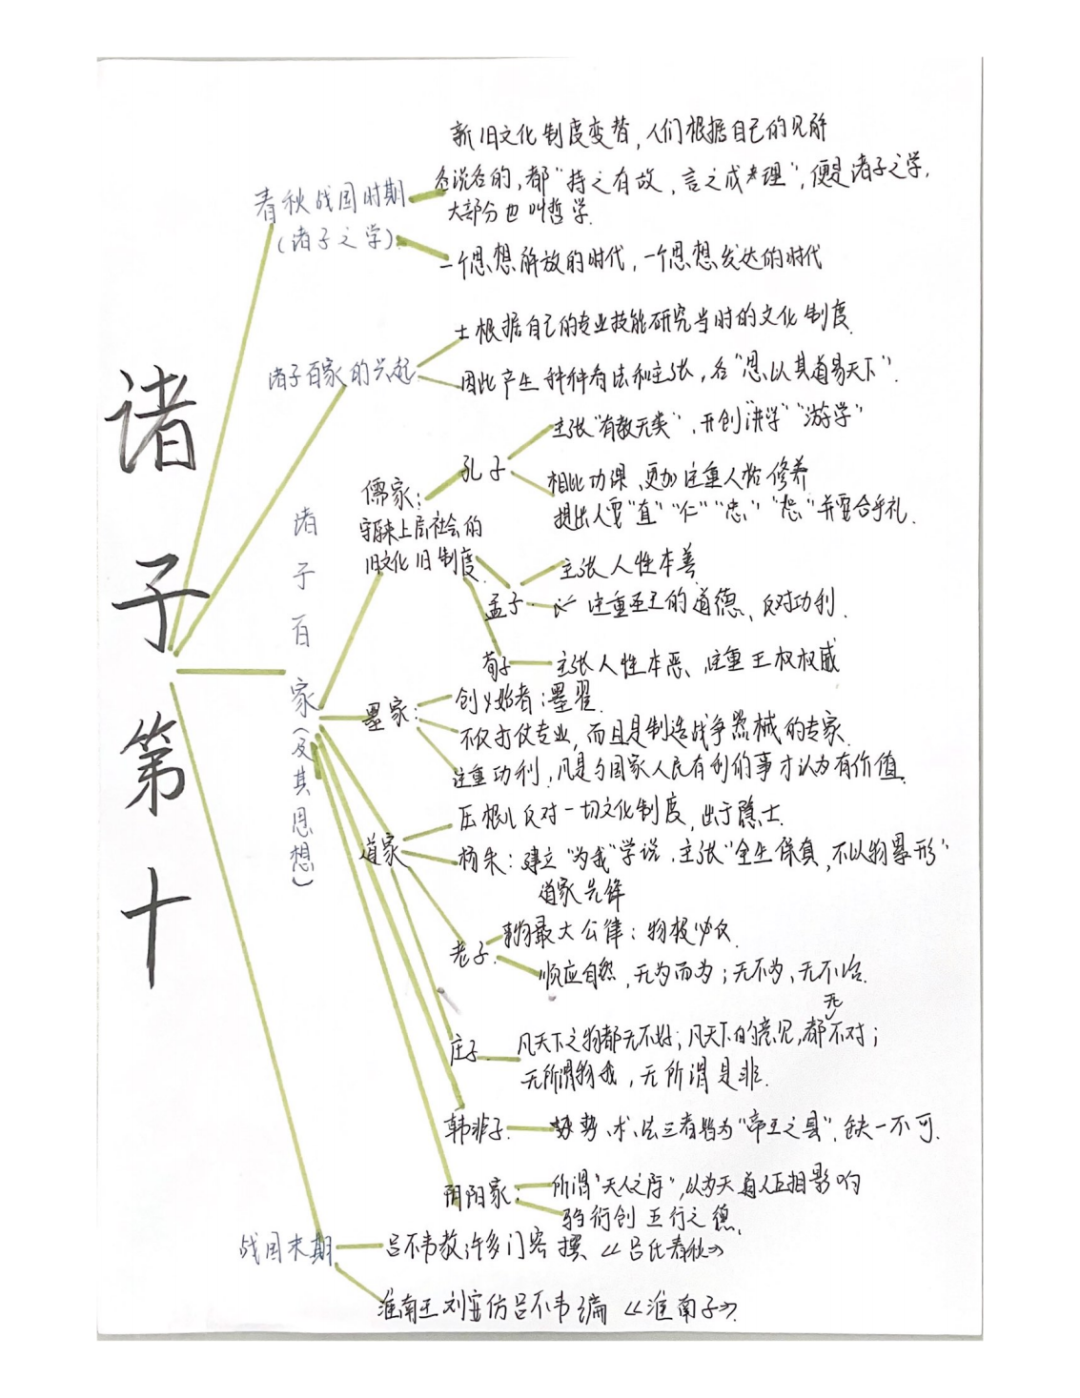 诸子第十
春秋战国时期
(诸子之学)
新旧文化制度变替,人们根据自己的见解
各说各的,都"持之有故,言之成理",便是诸子之学,
大部分也叫哲学.
一个思想解放的时代,一个思想发达的时代
诸子百家的兴起
士根据自己的专业技能研究当时的文化制度.
因此产生种种看法和主张,各"思以其道易天下".
诸子百家(及其思想)
儒家:
守原来上层社会的
旧文化旧制度.
孔子
主张"有教无类",开创"讲学""游学"
相比功课,更加注重人格修养
提出人要"直""仁""忠""恕"并要合乎礼.
孟子
主张人性本善
注重君王的道德、反对功利.
荀子
主张人性本恶、注重王权权威
墨家:
创始者:墨翟.
不仅打仗专业,而且是制造战争器械的专家.
注重功利,凡是与国家人民有利的事才认为有价值.
道家
压根儿反对一切文化制度,出于隐士.
杨朱:建立"为我"学说.主张"全生保真,不以物累形"
道家先锋
老子.
事物最大公律:物极必反.
顺应自然,无为而为;无不为、无不治.
庄子
凡天下之物都无不好;凡天下的意见,都无不对;
无所谓物我,无所谓是非.
韩非子
势、术、法三者皆为"帝王之具".缺一不可.
阴阳家:
所谓"天人之际",以为天道人正相影响
驺衍创五行之德.
战国末期
吕不韦教许多门客撰《吕氏春秋》
淮南王刘安仿吕不韦编《淮南子》.